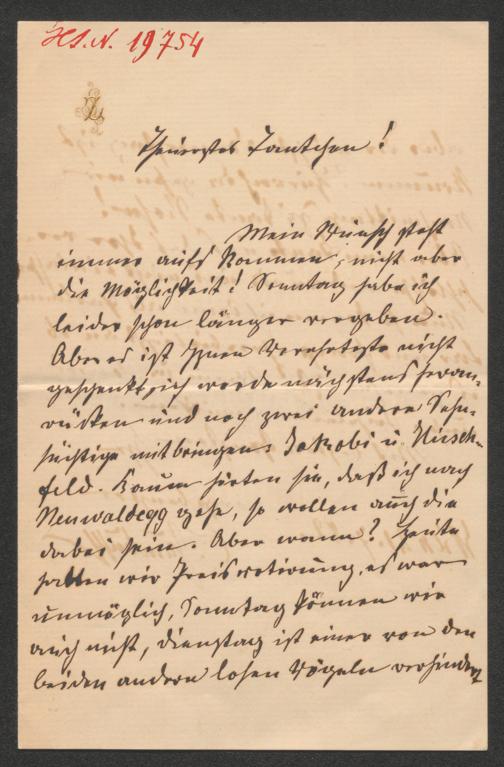 H.I.N. 19754
Theuerstes Tantchen!
Mein Wunsch geht
immer aufs Kommen, nicht aber
die Möglichkeit! Sonntag habe ich
leider schon länger vergeben.
Aber es ist Ihnen Verehrteste nicht
geschenkt, ich werde nächstens heran-
rücken und noch zwei andere Sehn-
süchtige mitbringen, Jakobi u. Hirsch-
feld. Kaum hörten sie, daß ich nach
Neuwaldegg gehe, so wollen auch die
dabei sein. Aber wann? Heute
hatten wir Preisvotirung, es war
unmöglich, Sonntag können wir
auch nicht, Dienstag ist einer von den
beiden andern losen Vögeln verhindert